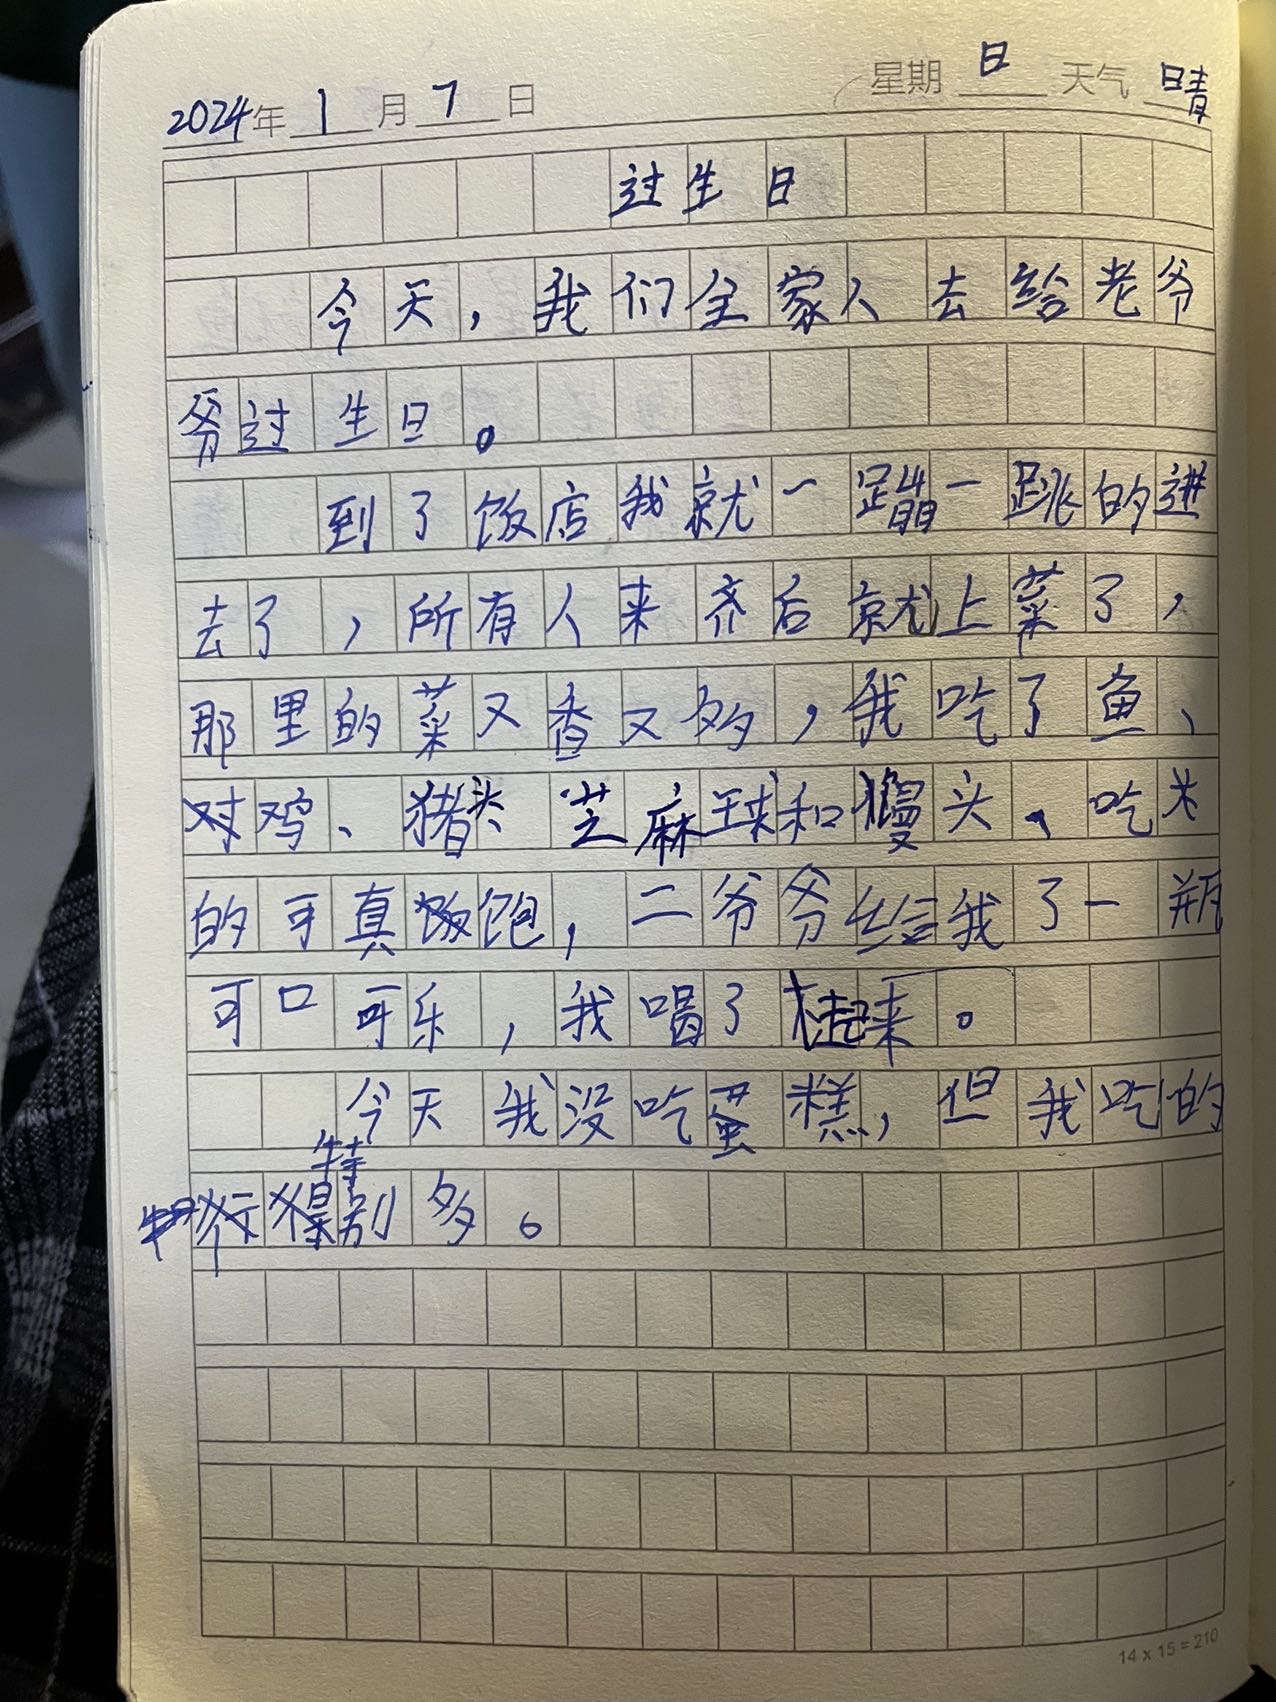 2024年1月7日 星期日 天气晴
过生日
今天,我们全家人去给老爷
爷过生日。
到了饭店我就一蹦一跳的进
去了,所有人来齐后就上菜了,
那里的菜又香又多,我吃了鱼、
鸡、猪头 芝麻球和馒头、吃
的可真饱,二爷爷给我了一瓶
可口可乐,我喝了起来。
今天我没吃蛋糕,但我吃的
特别多。
14 x 15 = 210